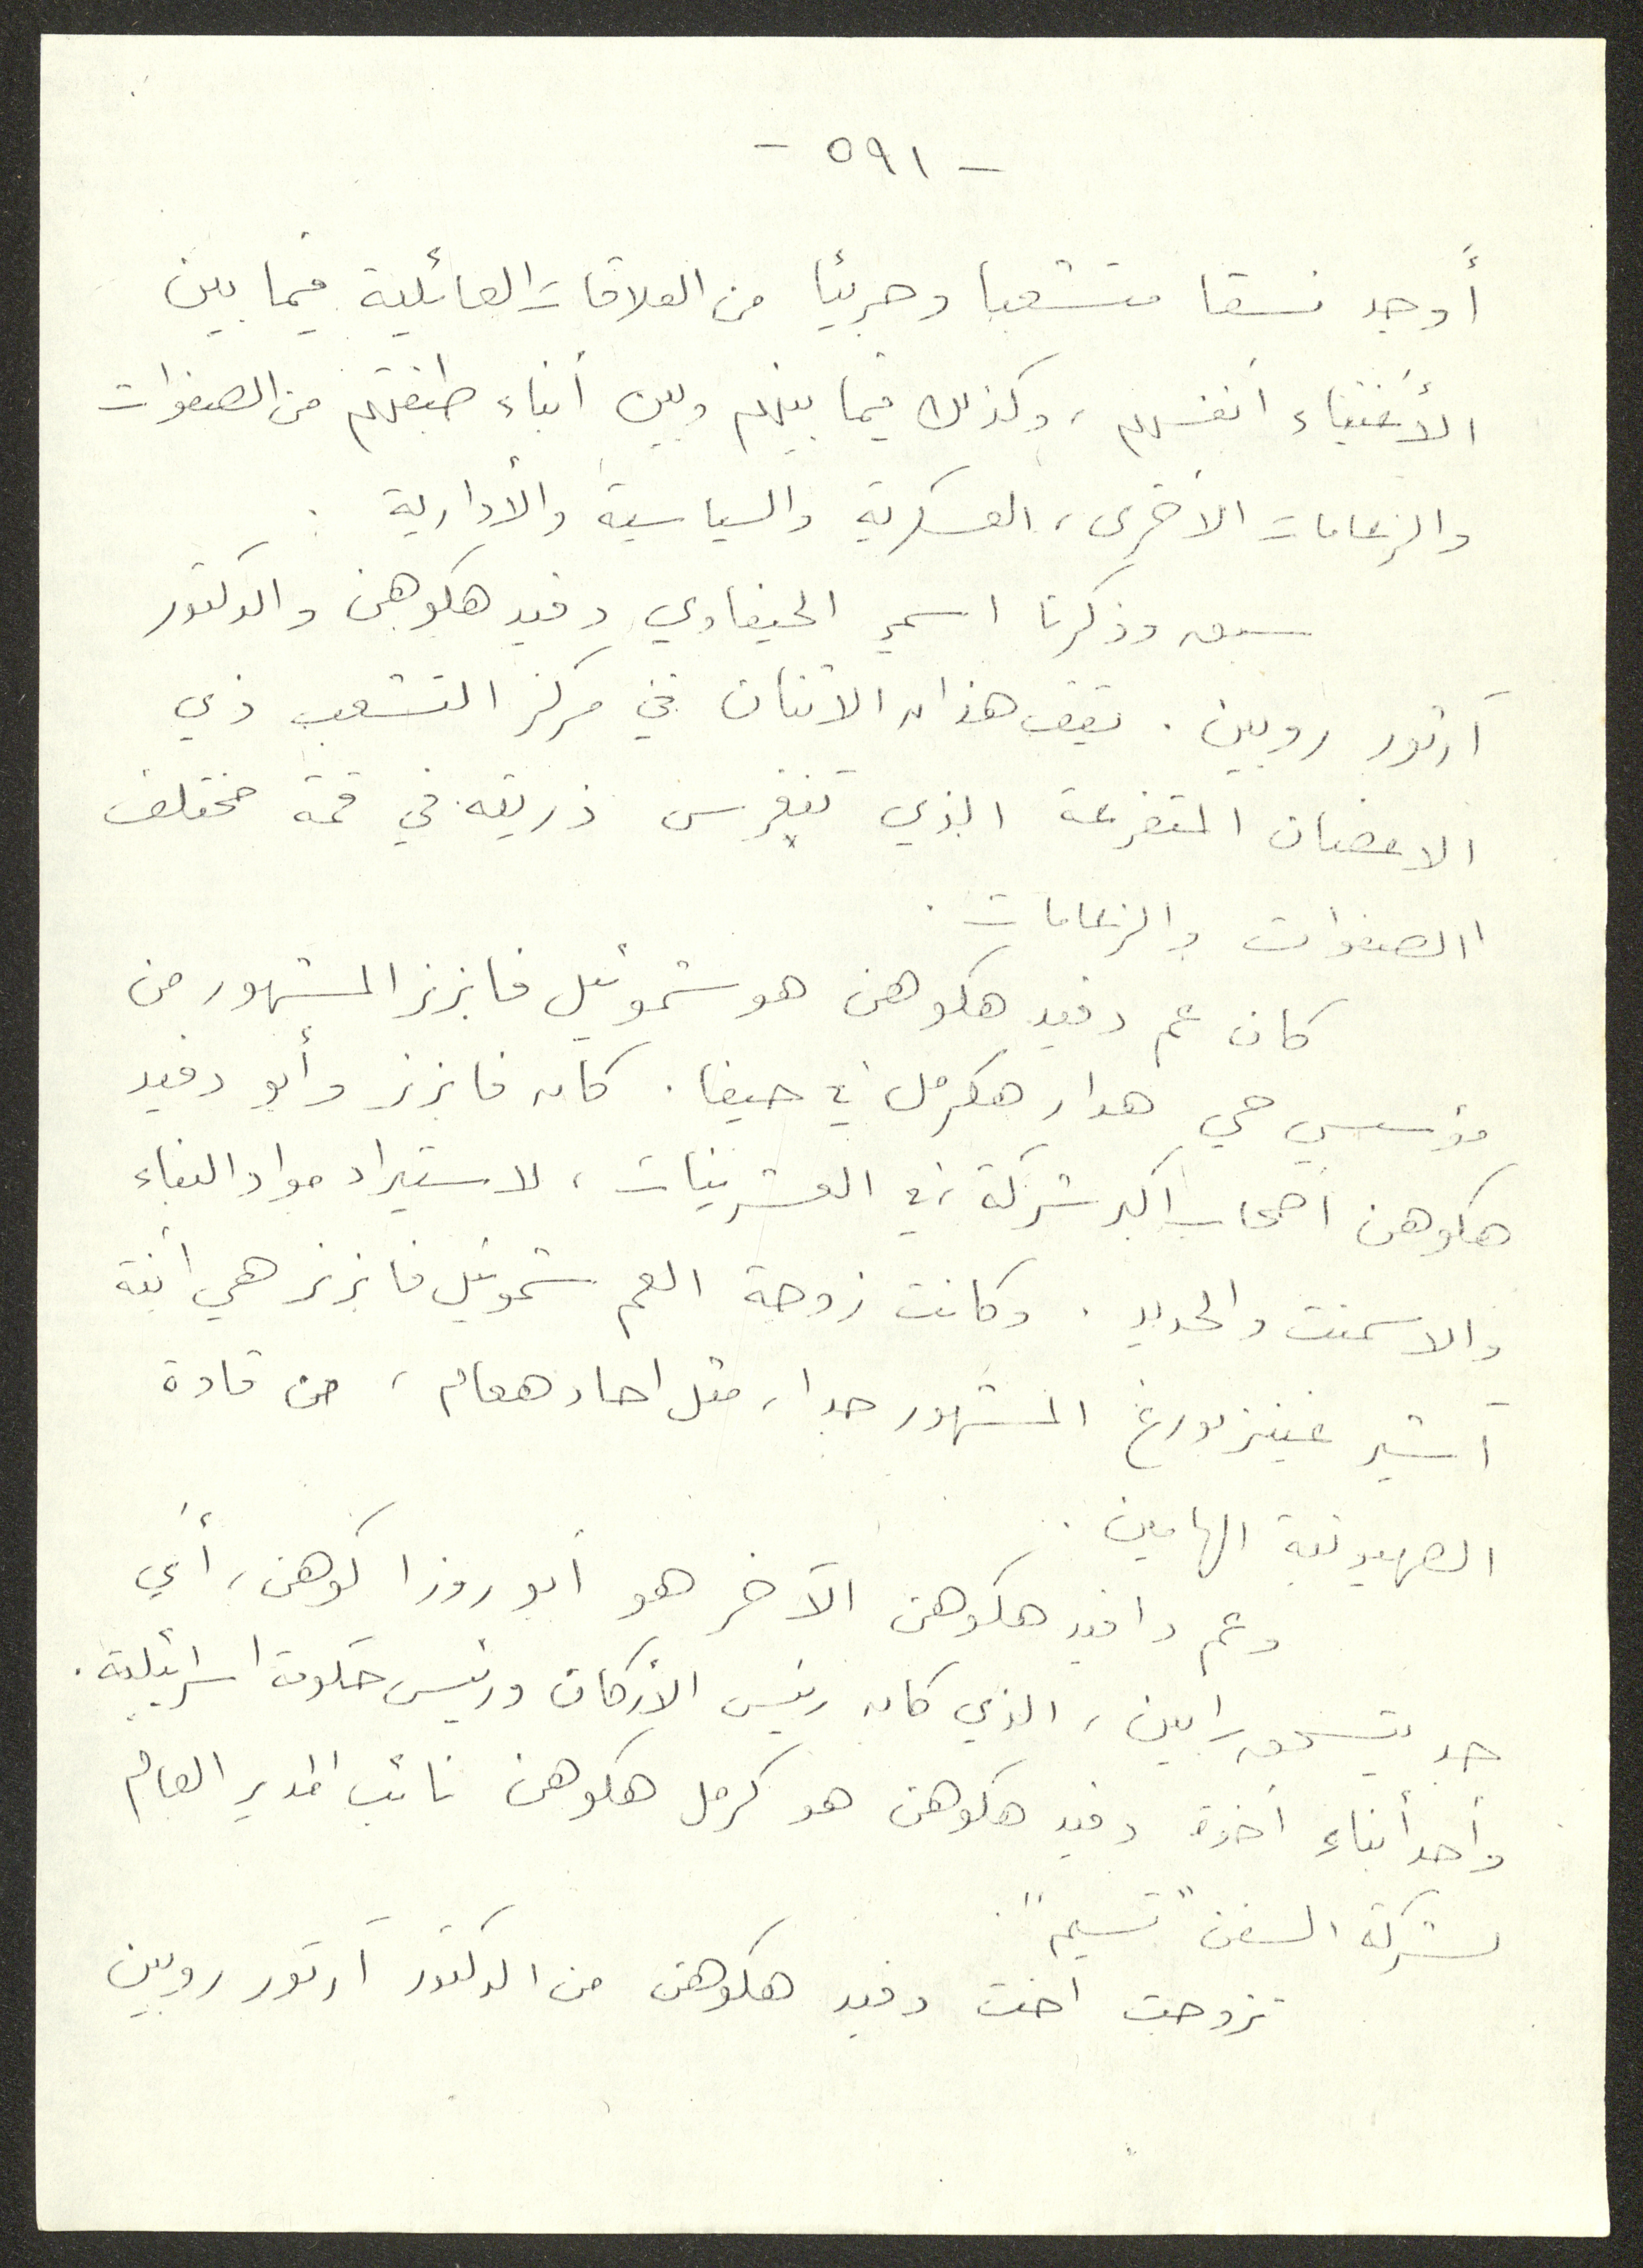 - ٥٩١ -
أوجد نسقا متشعبا وجريئا من العلاقات العائلية فيما بين
الأغنياء أنفسهم، وكذلك فيما بينهم وبين أبناء طبقتهم من الصفوات
والزعامات الأخرى، العسكرية والسياسية والأدارية .
سبق وذكرنا اسمي الحيفاوي دفيد هكوهن والدكتور
آرثور روبين . يقف هذان الاثنان في مركز التشعب ذي
الاغصان المتفرعة الذي تنغرس ذريته في قمة مختلف
الصفوات والزعامات .
كان عم دفيد هكوهن هو شموئيل فابزنر المشهور من
مؤسسي حي هدار هكرمل في حيفا . كان فابزنر وأبو دفيد
هكوهن أصحاب أكبر شركة في العشرينات ، لاستيراد مواد البناء
والاسمنت والحديد . وكانت زوجة العم شموئيل فابزنر هي أبنة
آشير غينزبورغ المشهور جدا، مثل احاد هعام ، من قادة
الصهيونية الهامين .
وعم دافيد هكوهن الآخر هو أبو روزا كوهن، أي
جد يتسحق رابين ، الذي كان رئيس الأركان ورئيس حكومة اسرائيلية .
وأحد أبناء أخوة دفيد هكوهن هو كرمل هكوهن نائب المدير العام
لشركة السفن "تسيم" .
تزوجت اخت دفيد هكوهن من الدكتور آرثور روبين